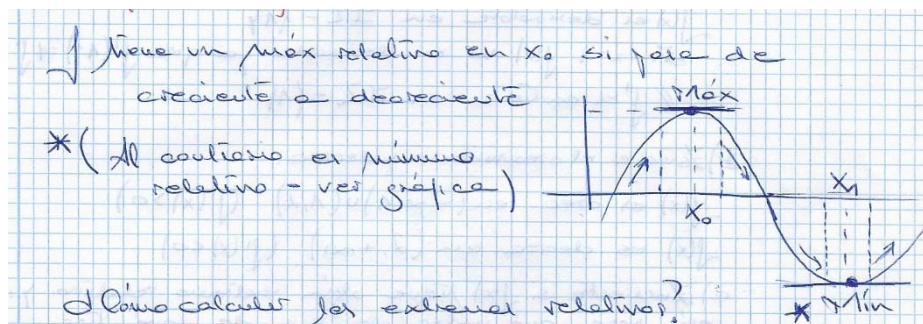 f tiene un máx relativo en x₀ si pasa de
creciente a decreciente
*(Al contrario es mínimo
relativo - ver gráfica)
Máx
x₀
x₁
* Mín
¿Cómo calcular los extremos relativos?